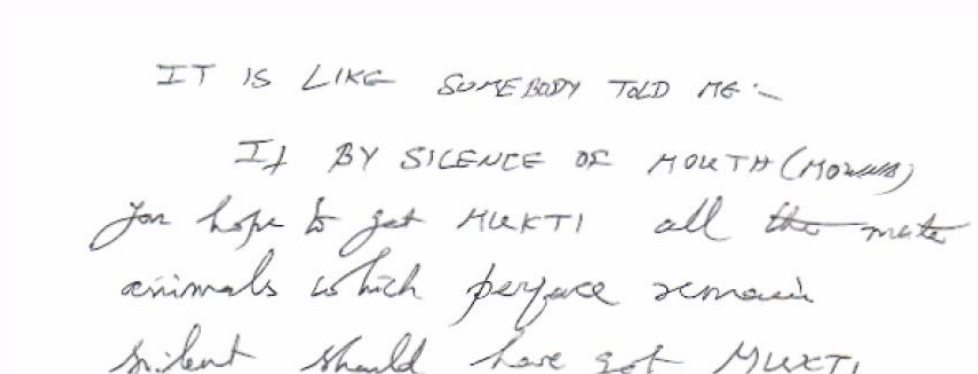 IT IS LIKE SOMEBODY TOLD ME :-
If BY SILENCE OF MOUTH (MOWNA)
you hope to get MUKTI all the mute
animals which perforce remain
silent should have got MUKTI